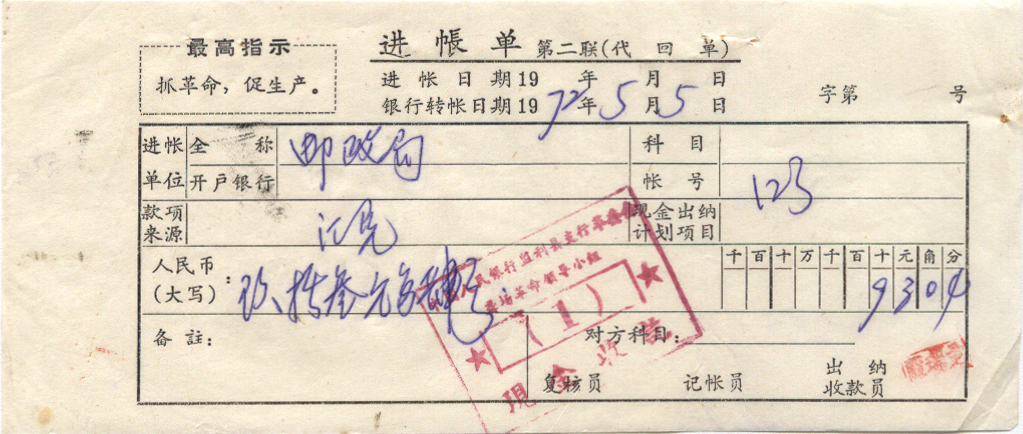 最高指示
抓革命，促生产。
进 帳 单 第二联(代 回 单)
进 帐 日 期 19 年 月 日
银行转帐日期 1972年5月5日
字第 号
进帐单位 全 称 邮政局 科 目
开户银行 帐 号 123
款项来源 汇兑 现金出纳计划项目
人民币(大写)： 玖拾叁元零肆分
千百十万千百十元角分
9304
备 註：
对方科目：
复核员 记帐员 出纳收款员
人民银行监利县支行革命
革命领导小组
(1)
现金收讫